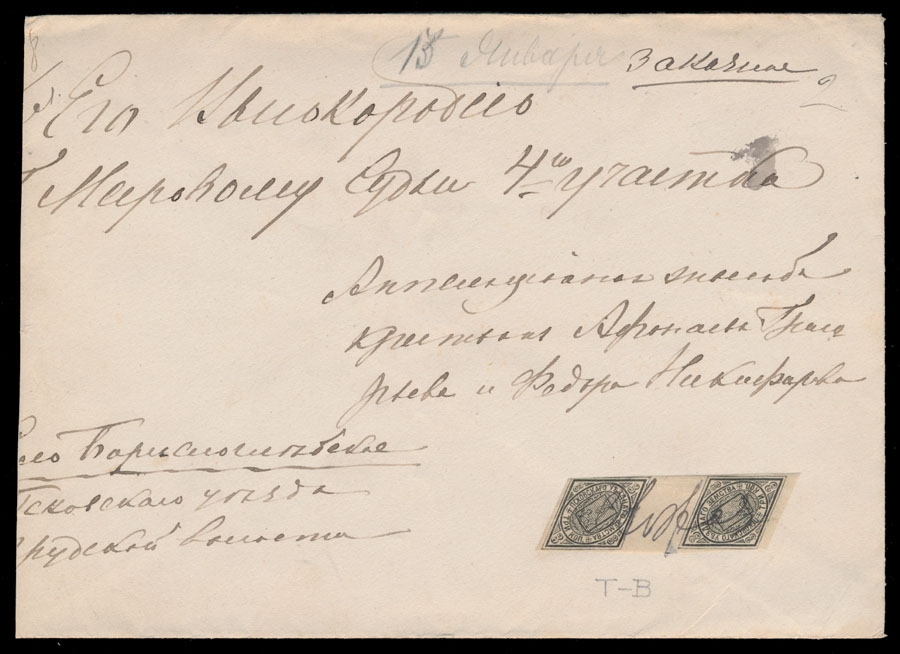 15 Января Заказное
Его Высокородію
Мировому Судьи 4го участка
Аппеляціонная жалоба
крестьянъ Афонасья Григо
рьева и Федора Никифорова
Село Борисоглѣбское
Псковскаго уѣзда
волости
T-B